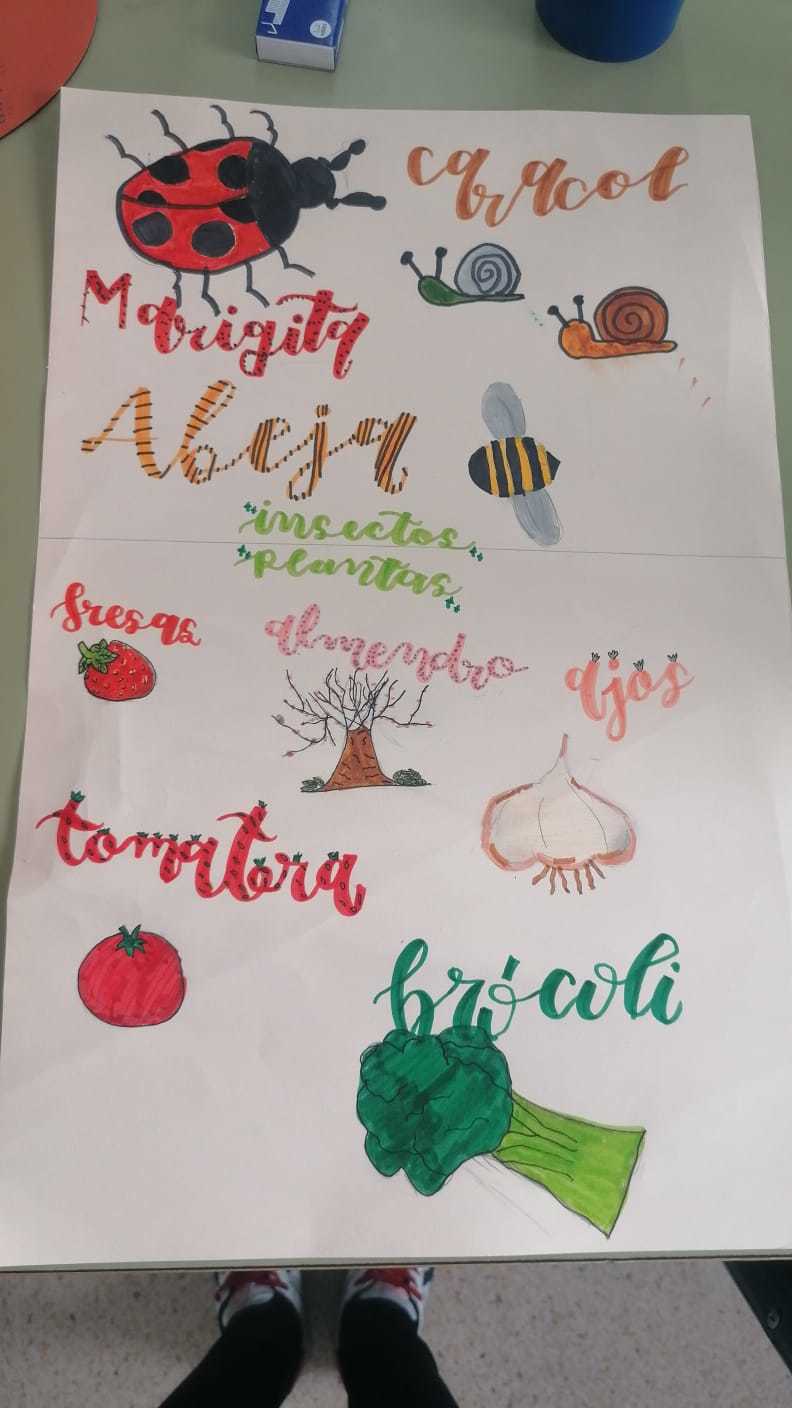 caracol
Marigita
Abeja
insectos
plantas
fresas
almendro
ajos
tomatera
brócoli